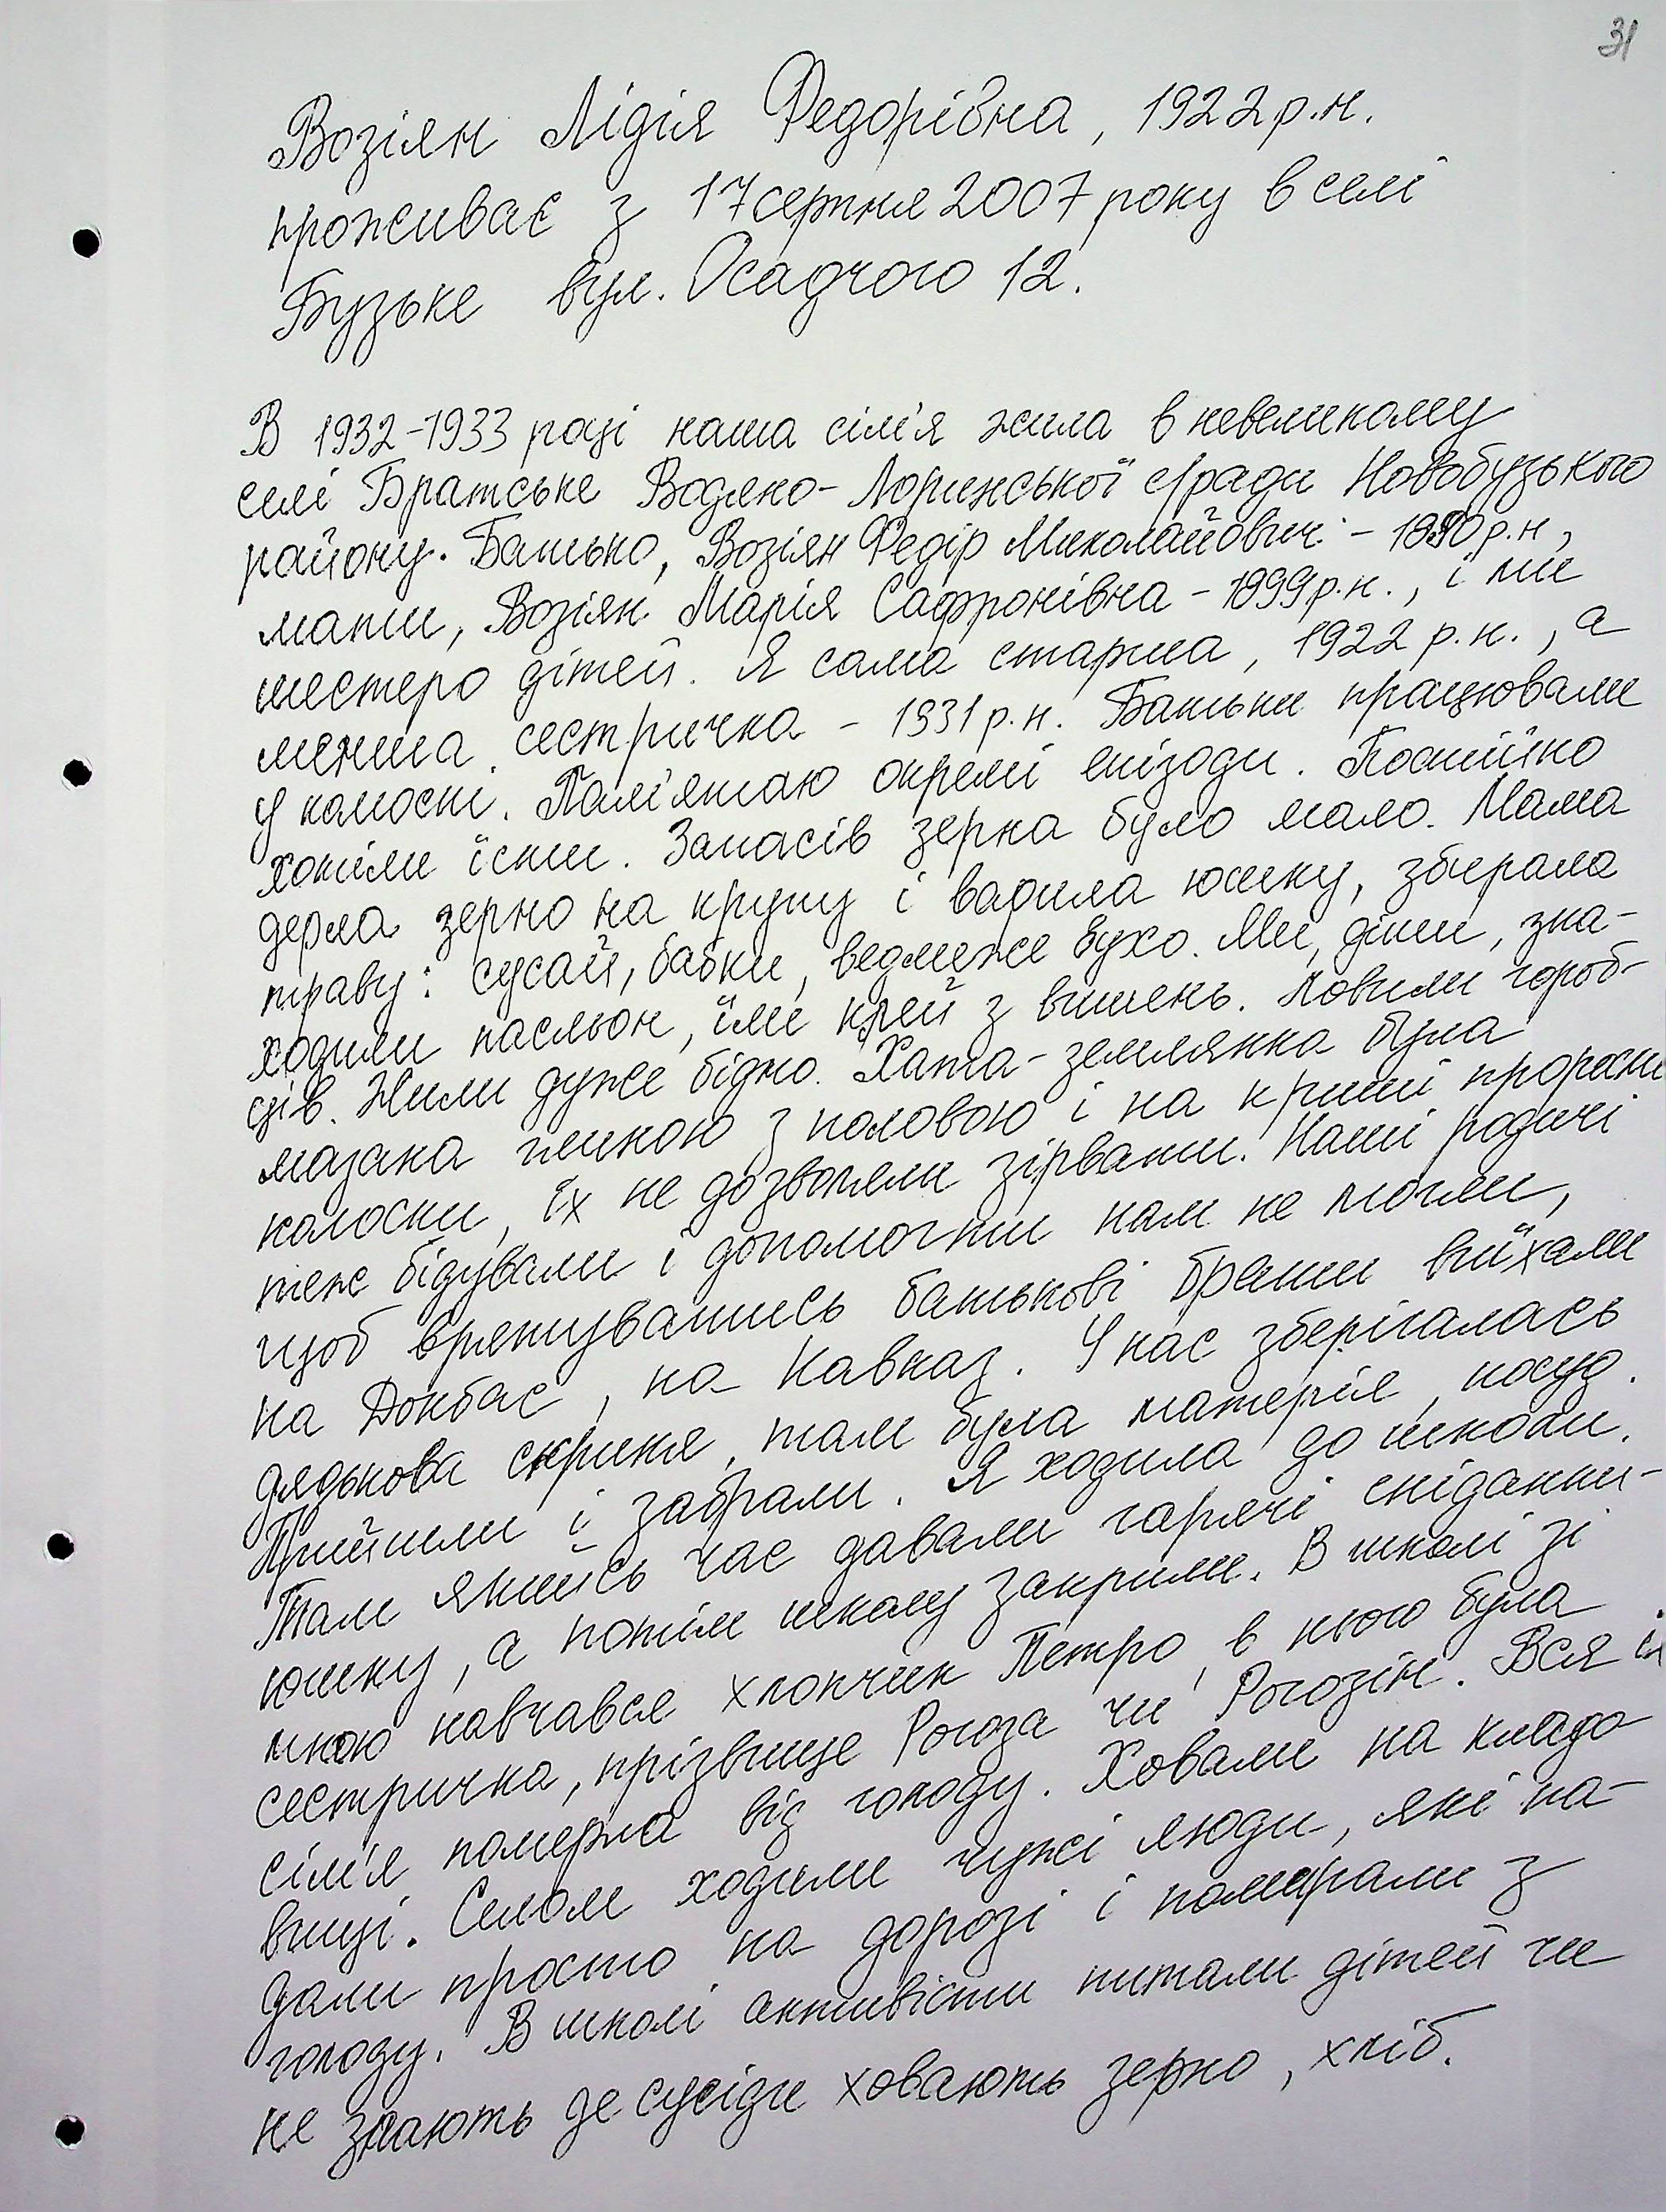 31
Возіян Лідія Федорівна, 1922 р.н.
проживає з 17 серпня 2007 року в селі
Бузьке вул. Осадчого 12.
В 1932-1933 році наша сім'я жила в невеликому
селі Братське Водяно-Лоринської с/ради Новобузького
району. Батько, Возіян Федір Миколайович - 1890 р.н,
мати, Возіян Марія Сафронівна - 1899 р.н., і ми
шестеро дітей. Я сама старша, 1922 р.н., а
менша сестричка - 1931 р.н. Батьки працювали
у колоспі. Пам'ятаю окремі епізоди. Постійно
хотіли їсти. Запасів зерна було мало. Мама
дерла зерно на крупу і варила юшку, збирала
траву: сусай, бабки, ведмеже вухо. Ми, діти, зна-
ходили пасльон, їли клей з вишень. Ловили гороб-
ців. Жили дуже бідно. Хата-землянка була
мазана глиною з половою і на криші проросли
колоски, їх не дозволяли зірвати. Наші родичі
теж бідували і допомогти нам не могли,
щоб врятуватись батькові брати виїхали
на Донбас, на Кавказ. У нас зберігалась
дядькова скриня, там була матерія, посуд.
Прийшли і забрали. Я ходила до школи.
Там якийсь час давали гарячі сніданки-
юшку, а потім школу закрили. В школі зі
мною навчався хлопчик Петро, в нього була
сестричка, прізвище Рогоза чи Рогозін. Вся
сім'я померла від голоду. Ховали на кладо
вищі. Селом ходили чужі люди, які па-
дали просто на дорозі і помирали з
голоду. В школі активісти питали дітей чи
не знають де сусіди ховають зерно, хліб.